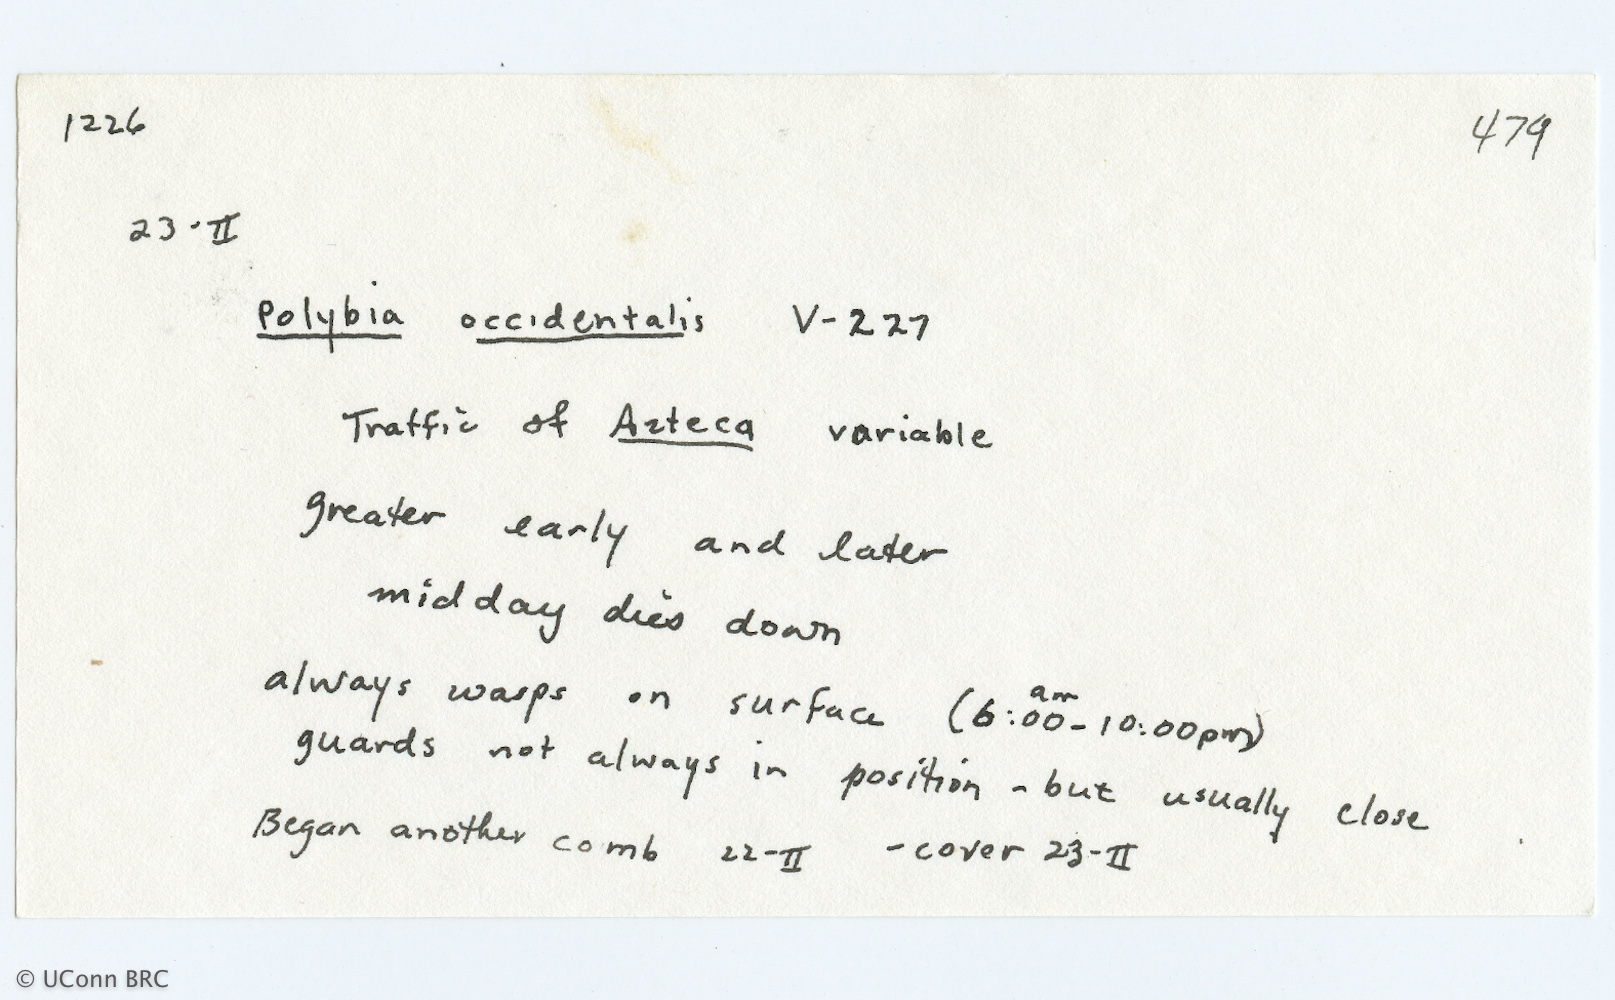 1226 479
23-II
Polybia occidentalis V-227
Traffic of Azteca variable
greater early and later
midday dies down
always wasps on surface (6:00am-10:00pm)
guards not always in position - but usually close
Began another comb 22-II - cover 23-II
© UConn BRC